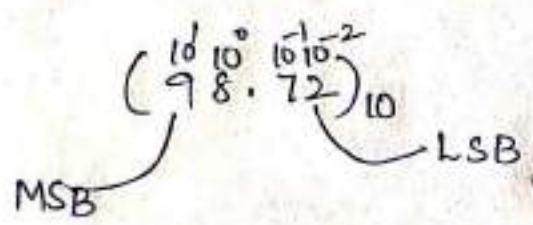 10¹ 10⁰ 10⁻¹ 10⁻²
(98.72)₁₀
LSB
MSB